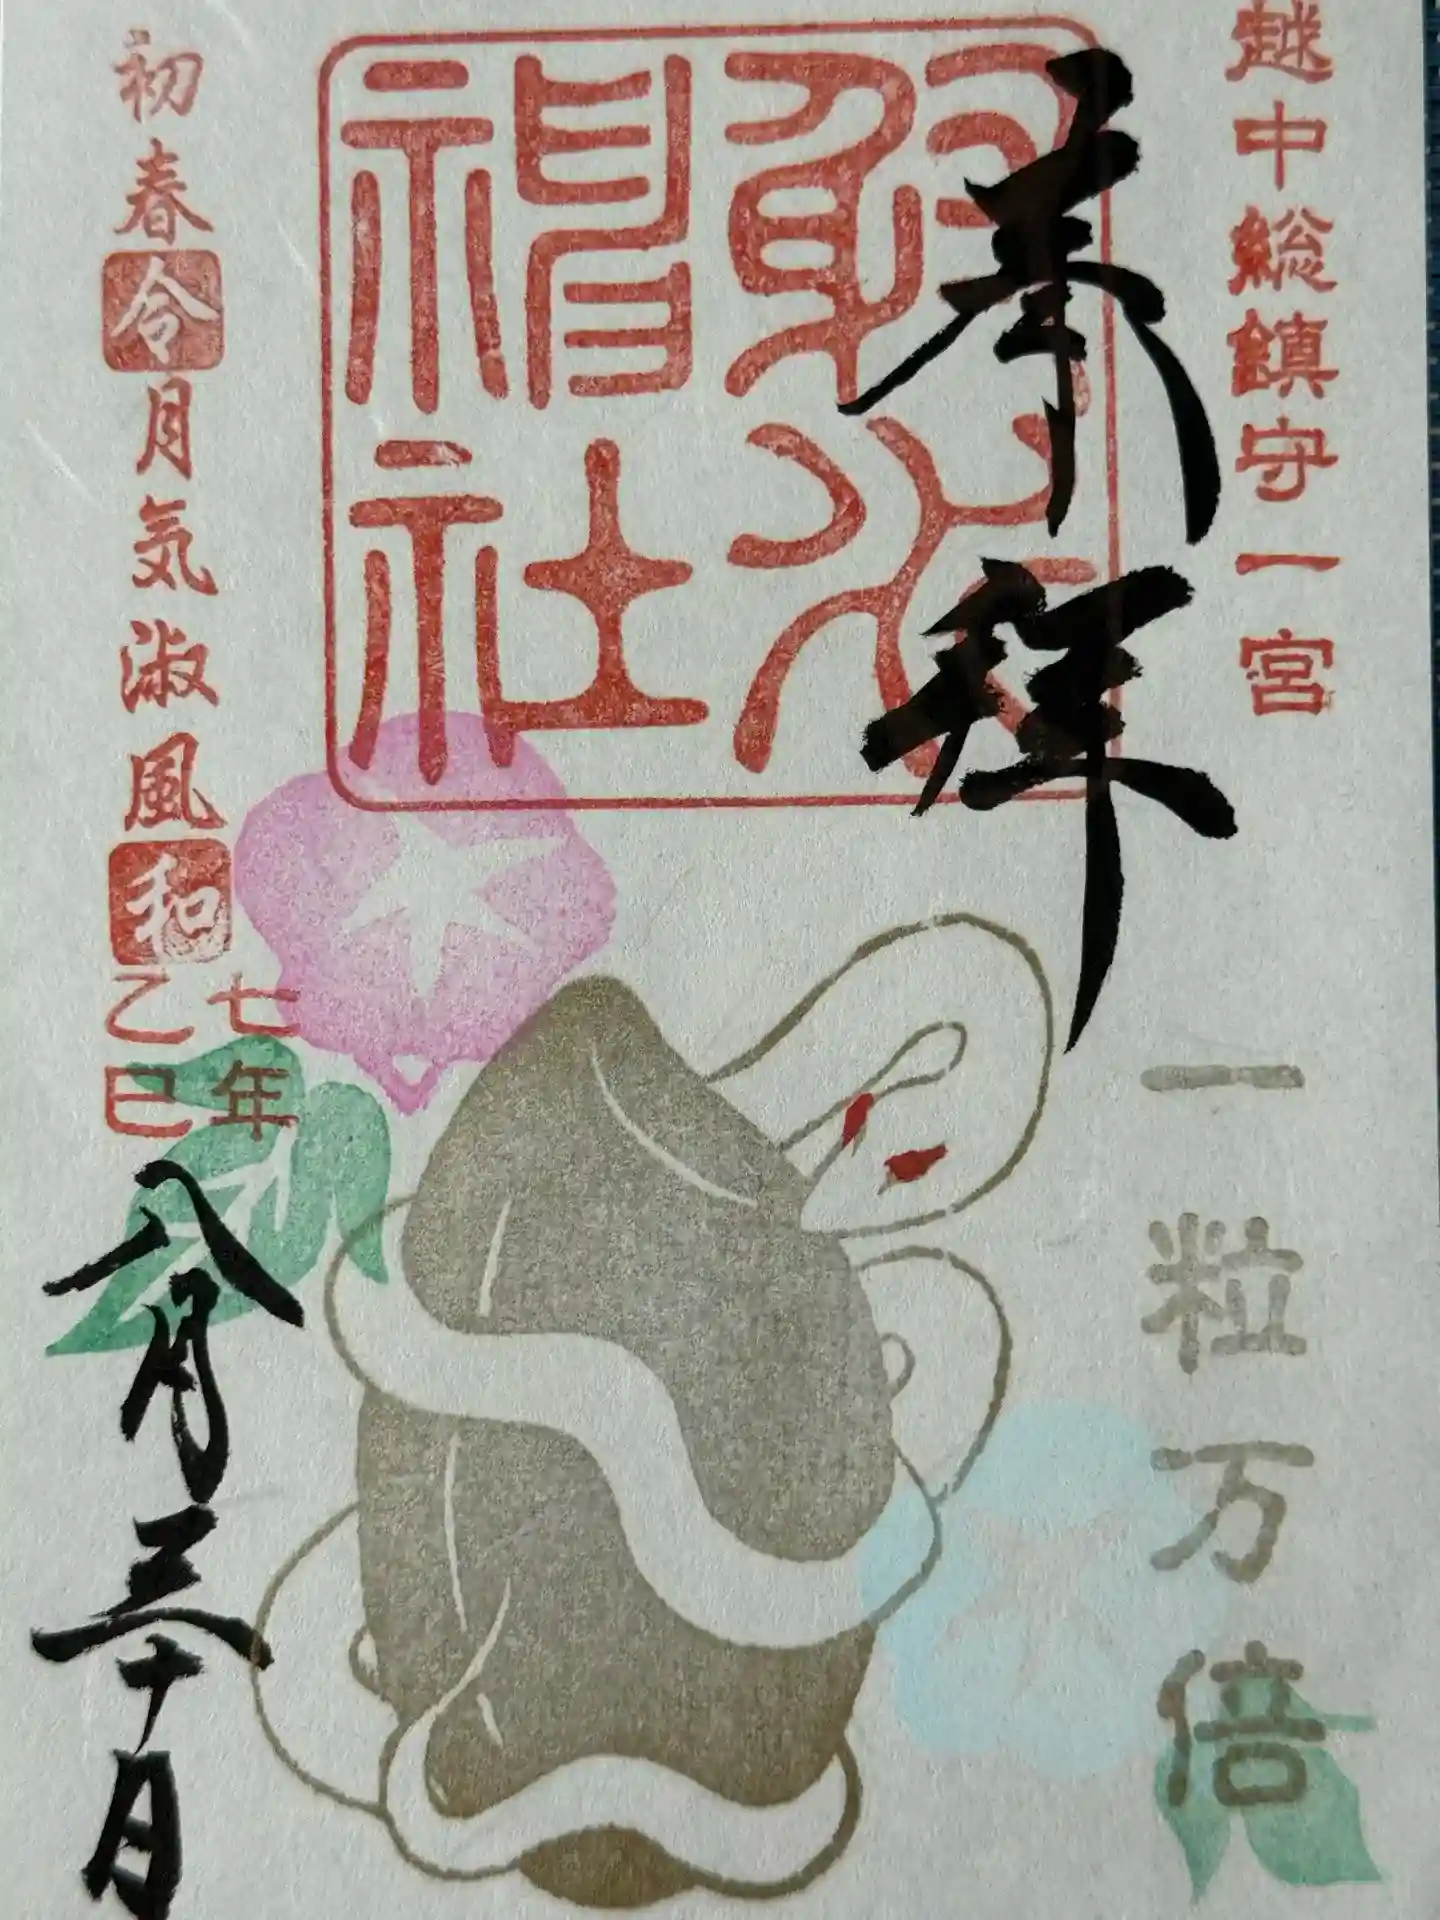 越中総鎮守一宮
奉拝
射水神社
一粒万倍
初春令月気淑風和
七年
乙巳
八月三十日